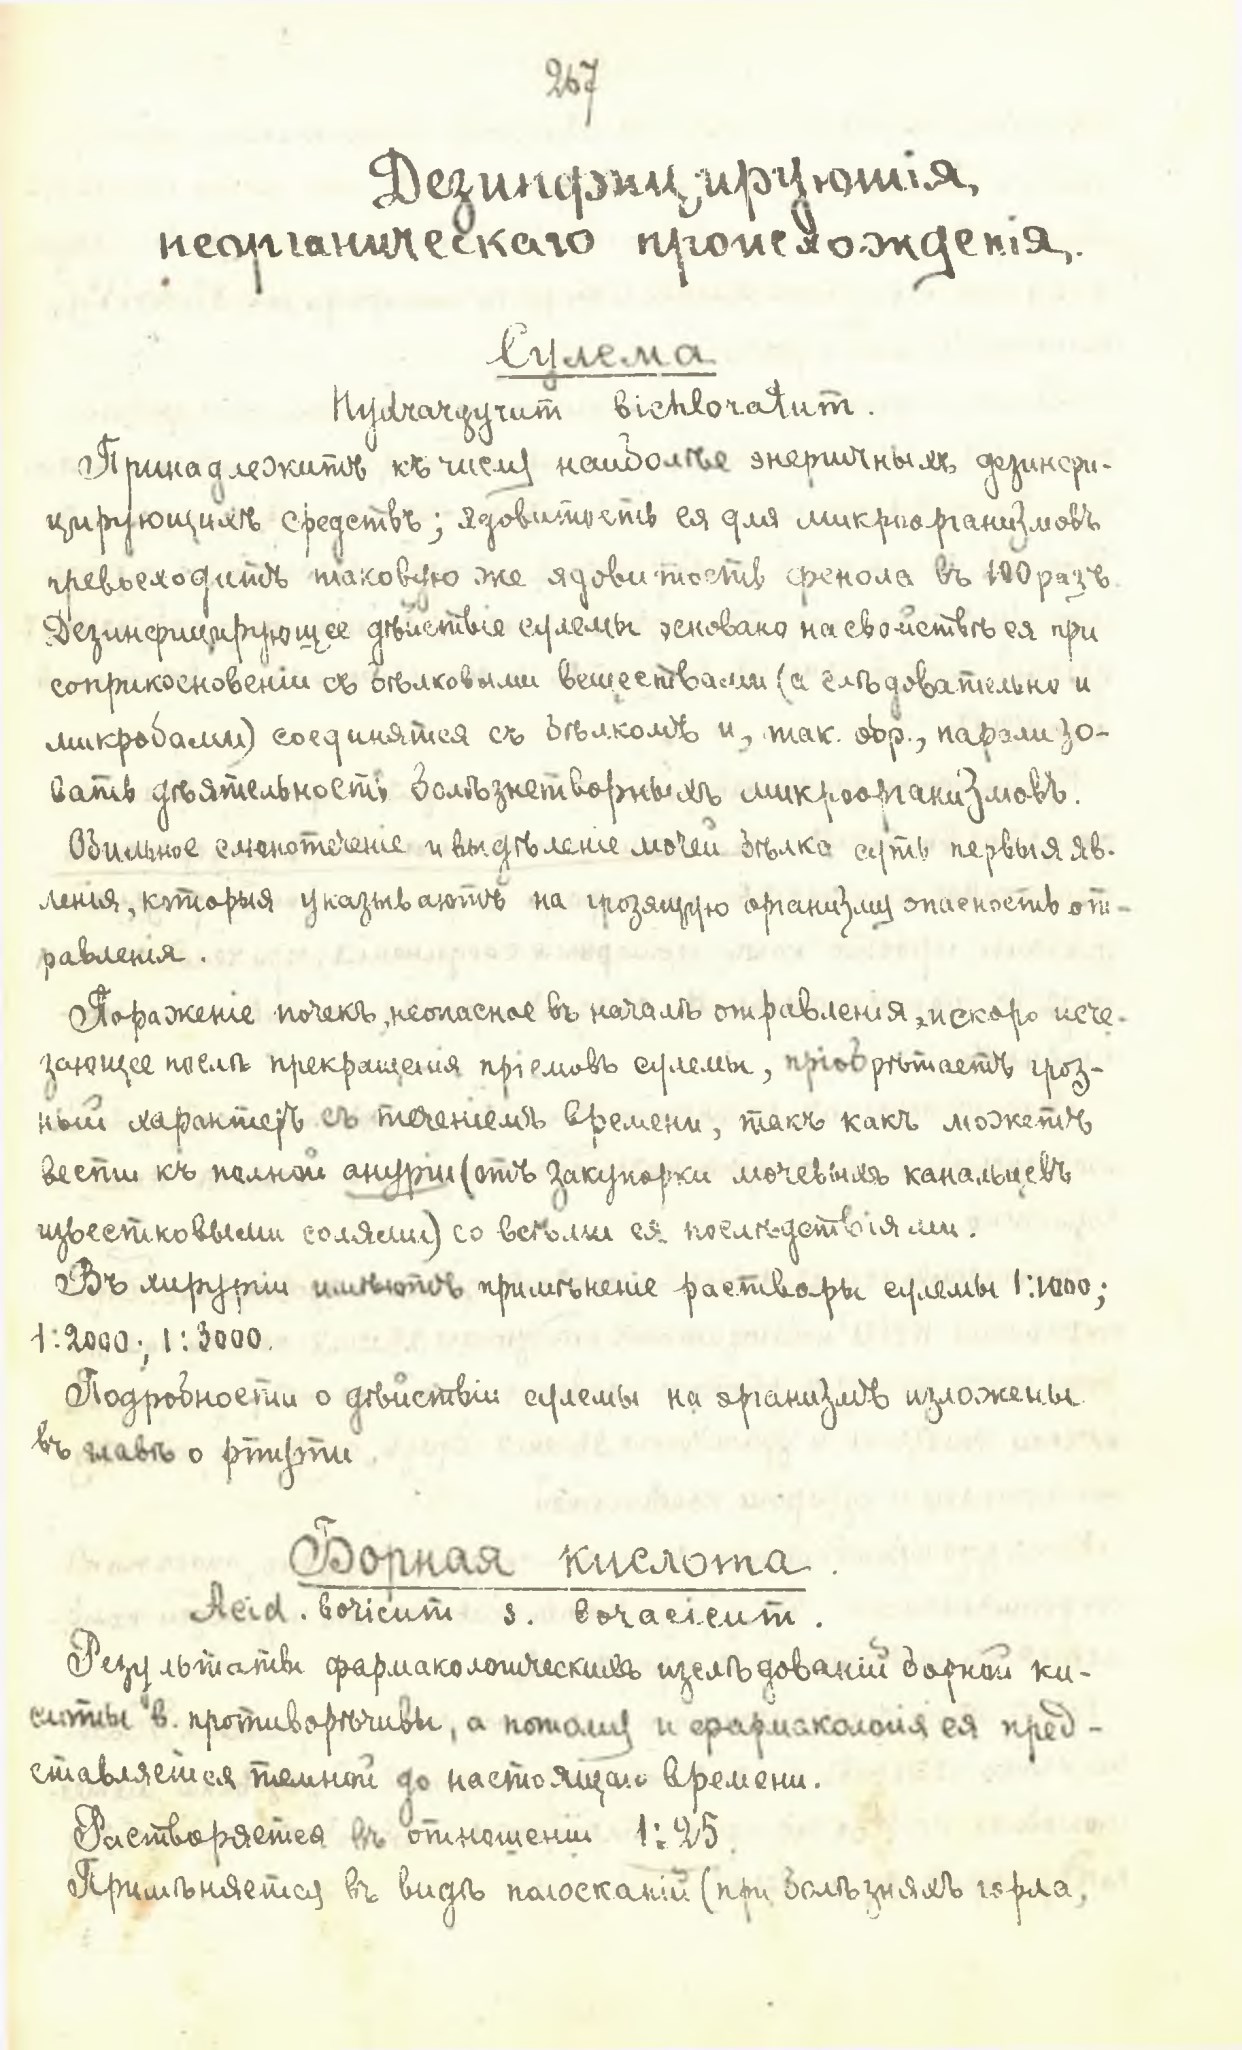 267
Дезинфицирующія,
неорганическаго происхожденія.
Сулема
Hydrargyrum bichloratum.
Принадлежитъ къ числу наиболѣе энергичныхъ дезинфи-
цирующихъ средствъ; ядовитость ея для микроорганизмовъ
превосходитъ таковую же ядовитость фенола въ 100 разъ
Дезинфицирующее дѣйствіе сулемы основано на свойствѣ ея при
соприкосновеніи съ бѣлковыми веществами (а слѣдовательно и
микробами) соединятся съ бѣлкомъ и, так. обр., парализо-
вать дѣятельность болѣзнетворныхъ микроорганизмовъ.
Обильное слюнотеченіе и выдѣленіе мочей бѣлка суть первыя яв-
ленія, которыя указываютъ на грозящую организму опасность от-
равленія.
Пораженіе почекъ, неопасное въ началѣ отравленія, и скоро исче-
зающее послѣ прекращенія пріемовъ сулемы, пріобрѣтаетъ гроз-
ный характеръ съ теченіемъ времени, такъ какъ можетъ
вести къ полной ануріи (отъ закупорки мочевыхъ канальцевъ
известковыми солями) со всѣми ея послѣдствіями.
Въ хирургіи имѣютъ примѣненіе растворы сулемы 1:1000;
1:2000; 1:3000.
Подробности о дѣйствіи сулемы на организмъ изложены
въ главѣ о ртути
Борная кислота.
Acid. boricum s. boracicum.
Результаты фармакологическихъ изслѣдованій борной ки-
слоты в. противорѣчивы, а потому и фармакологія ея пред-
ставляется темной до настоящаго времени.
Растворяется въ отношеніи 1:25.
Примѣняется въ видѣ полосканій (при болѣзняхъ горла,